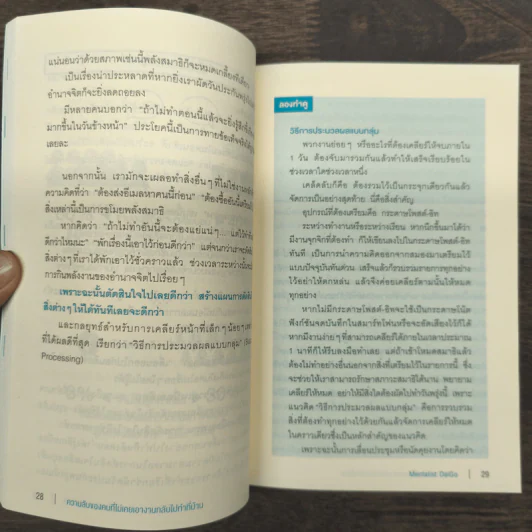 แน่นอนว่าด้วยสภาพเช่นนี้พลังสมาธิก็จะหมดเกลี้ยงทีเดียว
เป็นเรื่องน่าประหลาดที่หากยิ่งเราผัดวันประกันพรุ่ง
อำนาจจิตก็จะยิ่งลดถอยลง
มีหลายคนบอกว่า “ถ้าไม่ทำตอนนี้แล้วจะยิ่งรู้สึก
มากขึ้นในวันข้างหน้า” ประโยคนี้เป็นการทายข้อเท็จจริง
เลยละ
นอกจากนั้น เรามักจะเผลอทำสิ่งอื่นๆ ที่ไม่ใช่งาน
ความคิดที่ว่า “ต้องส่งอีเมลหาคนนี้ก่อน” “ต้องซื้ออันนี้
สิ่งเหล่านี้เป็นการขโมยพลังสมาธิ
หากคิดว่า “ถ้าไม่ทำอันนี้จะต้องแย่แน่ๆ... แต่ให้ทำ
ดีกว่าไหมนะ” “พักเรื่องนี้เอาไว้ก่อนดีกว่า” แต่จนกว่าเราจะ
สิ่งต่างๆ ที่เราได้พักเอาไว้ชั่วคราวแล้ว ช่วงเวลาระหว่างนั้น
การกินพลังงานของอำนาจจิตไปเรื่อยๆ
เพราะฉะนั้นตัดสินใจไปเลยดีกว่า สร้างแผนการ
สิ่งต่างๆ ให้ได้ทันทีเลยจะดีกว่า
และกลยุทธ์สำหรับการเคลียร์หน้าที่เล็กๆ น้อยๆ
ที่ได้ผลดีที่สุด เรียกว่า “วิธีการประมวลผลแบบกลุ่ม”
Processing)
28 | ความลับของคนที่ไม่เคยเอางานกลับไปทำที่บ้าน
ลองทำดู
วิธีการประมวลผลแบบกลุ่ม
พวกงานย่อยๆ หรืออะไรที่ต้องเคลียร์ให้จบภายใน
1 วัน ต้องจับมารวมกันแล้วทำให้เสร็จเรียบร้อยใน
ช่วงเวลาใดช่วงเวลาหนึ่ง
เคล็ดลับก็คือ ต้องรวมไว้เป็นกระจุกเดียวกันแล้ว
จัดการเป็นอย่างสุดท้าย นี่คือสิ่งสำคัญ
อุปกรณ์ที่ต้องเตรียมคือ กระดาษโพสต์-อิท
ระหว่างทำงานหรือระหว่างเรียน หากนึกขึ้นมาได้ว่า
มีงานจุกจิกที่ต้องทำ ก็ให้เขียนลงไปในกระดาษโพสต์-อิท
ทันที เป็นการนำความคิดออกจากสมองมาเตรียมไว้
แบบปัจจุบันทันด่วน เสร็จแล้วก็รวบรวมรายการทุกอย่าง
ไว้อย่าให้ตกหล่น แล้วจึงค่อยเคลียร์ตามนั้นให้หมด
ทุกอย่าง
หากไม่มีกระดาษโพสต์-อิทจะใช้เป็นกระดาษโน้ต
ฟังก์ชันจดบันทึกในสมาร์ทโฟนหรือจะอัดเสียงไว้ก็ได้
หากมีงานง่ายๆ ที่สามารถเคลียร์ได้ภายในเวลาประมาณ
1 นาทีก็ให้รีบลงมือทำเลย แต่ถ้าเข้าโหมดสมาธิแล้ว
ต้องไม่ทำอย่างอื่นนอกจากสิ่งที่เตรียมไว้ในรายการนี้ ซึ่ง
จะช่วยให้เราสามารถรักษาสภาวะสมาธิได้นาน พยายาม
เคลียร์ให้หมด อย่าให้มีสิ่งใดต้องผัดไปทำวันพรุ่งนี้ เพราะ
แนวคิด “วิธีการประมวลผลแบบกลุ่ม” คือการรวบรวม
สิ่งที่ต้องทำทุกอย่างไว้ด้วยกันแล้วจัดการเคลียร์ให้หมด
ในคราวเดียวซึ่งเป็นหลักสำคัญของแนวคิด
เพราะฉะนั้นการเลื่อนประชุมหรือนัดคุยงานโดยคิดว่า
Mentalist DaiGo | 29